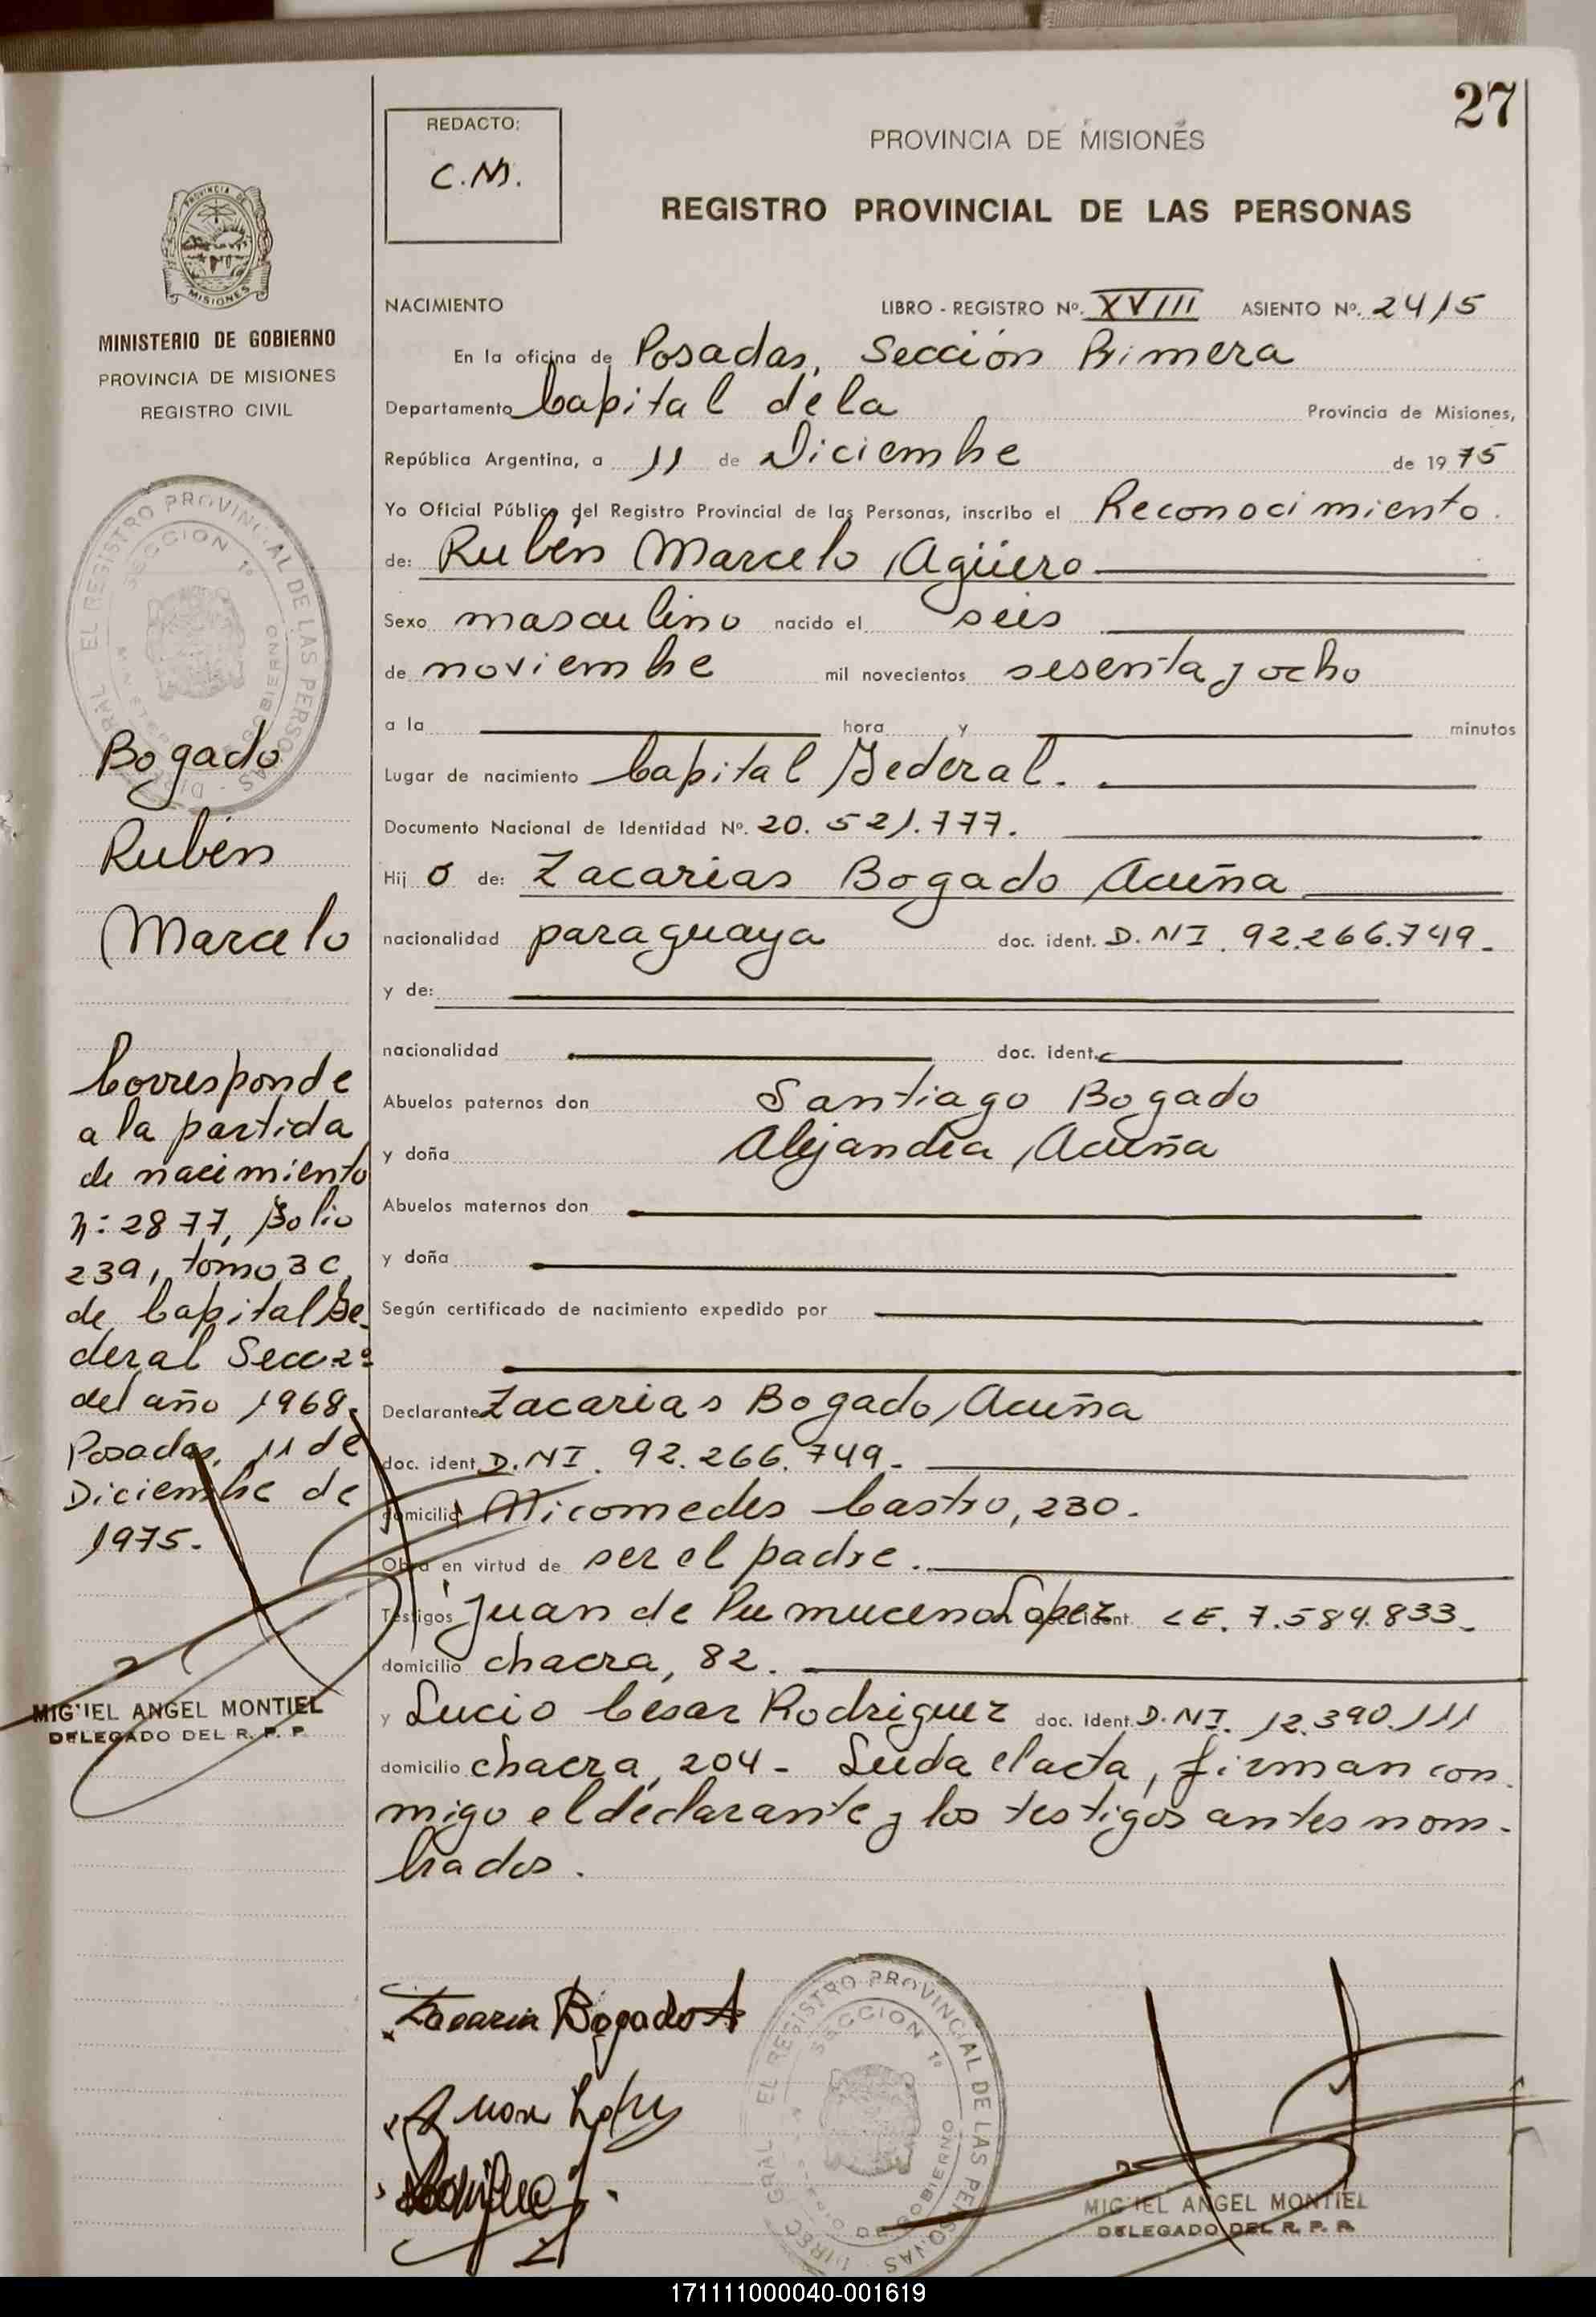 27
REDACTO:
C.M.
PROVINCIA DE MISIONES
REGISTRO PROVINCIAL DE LAS PERSONAS
MINISTERIO DE GOBIERNO
PROVINCIA DE MISIONES
REGISTRO CIVIL
NACIMIENTO LIBRO - REGISTRO Nº. XVIII ASIENTO Nº. 2415
En la oficina de Posadas, Sección Primera
Departamento Capital de la Provincia de Misiones,
República Argentina, a 11 de Diciembre de 1975
Yo Oficial Público del Registro Provincial de las Personas, inscribo el Reconocimiento.
de: Rubén Marcelo Agüero
Sexo masculino nacido el seis
de noviembre mil novecientos sesenta y ocho
a la hora y minutos
Lugar de nacimiento Capital Federal.
Documento Nacional de Identidad Nº. 20.521.777.
Hijo de: Zacarias Bogado Acuña
nacionalidad paraguaya doc. ident. D.NI. 92.266.749.
y de:
nacionalidad doc. ident.
Abuelos paternos don Santiago Bogado
y doña Alejandra Acuña
Abuelos maternos don
y doña
Según certificado de nacimiento expedido por
Declarante Zacarias Bogado Acuña
doc. ident. D.NI. 92.266.749.
domicilio Nicomedes Castro, 230.
Obra en virtud de ser el padre.
Testigos Juan de Pumuceno López doc. ident. LE. 7.584.833.
domicilio chacra, 82.
y Lucio César Rodriguez doc. ident. D.NI. 12.390.111
domicilio chacra, 204 - Leida el acta, firman con
migo el declarante y los testigos antes nom-
brados.
Zacaria Bogado A
Juan López
MIGUEL ANGEL MONTIEL
DELEGADO DEL R. P. P.
EL REGISTRO PROVINCIAL DE LAS PERSONAS
SECCION 1º
Bogado
Rubén
Marcelo
Corresponde
a la partida
de nacimiento
n: 2877, Folio
239, tomo 3 C,
de Capital Fe-
deral Secc 2ª
del año 1968.
Posadas, 11 de
Diciembre de
1975.
MIGUEL ANGEL MONTIEL
DELEGADO DEL R. P. P.
EL REGISTRO PROVINCIAL DE LAS PERSONAS
SECCION 1º
171111000040-001619